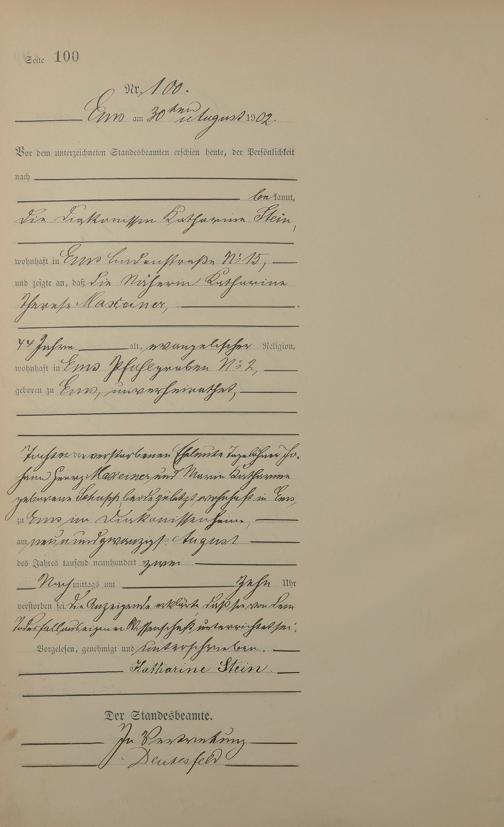 Seite 100
Nr. 100.
Ems am 30ten August 1902.
Vor dem unterzeichneten Standesbeamten erschien heute, der Persönlichkeit
nach
bekannt,
die Diakonissin Katharine Stein,
wohnhaft in Ems Lindenstraße No 15,
und zeigte an, daß die Näherin Katharine
Therese Maxeiner,
44 Jahre alt, evangelischer Religion,
wohnhaft in Ems Pfahlgraben No 2,
geboren zu Ems, unverheirathet,
Tochter der verstorbenen Eheleute Tagelöhner Jo-
hann Georg Maxeiner und Maria Katharine
geborene zuletzt wohnhaft in Ems
zu Ems im Diakonissenheim,
am neun und zwanzigsten August
des Jahres tausend neunhundert zwei
Nachmittags um zehn Uhr
verstorben sei. Die Anzeigende erklärte daß sie von dem
Todesfall aus eigener Wissenschaft unterrichtet sei.
Vorgelesen, genehmigt und unterschrieben.
Katharine Stein.
Der Standesbeamte.
In Vertretung